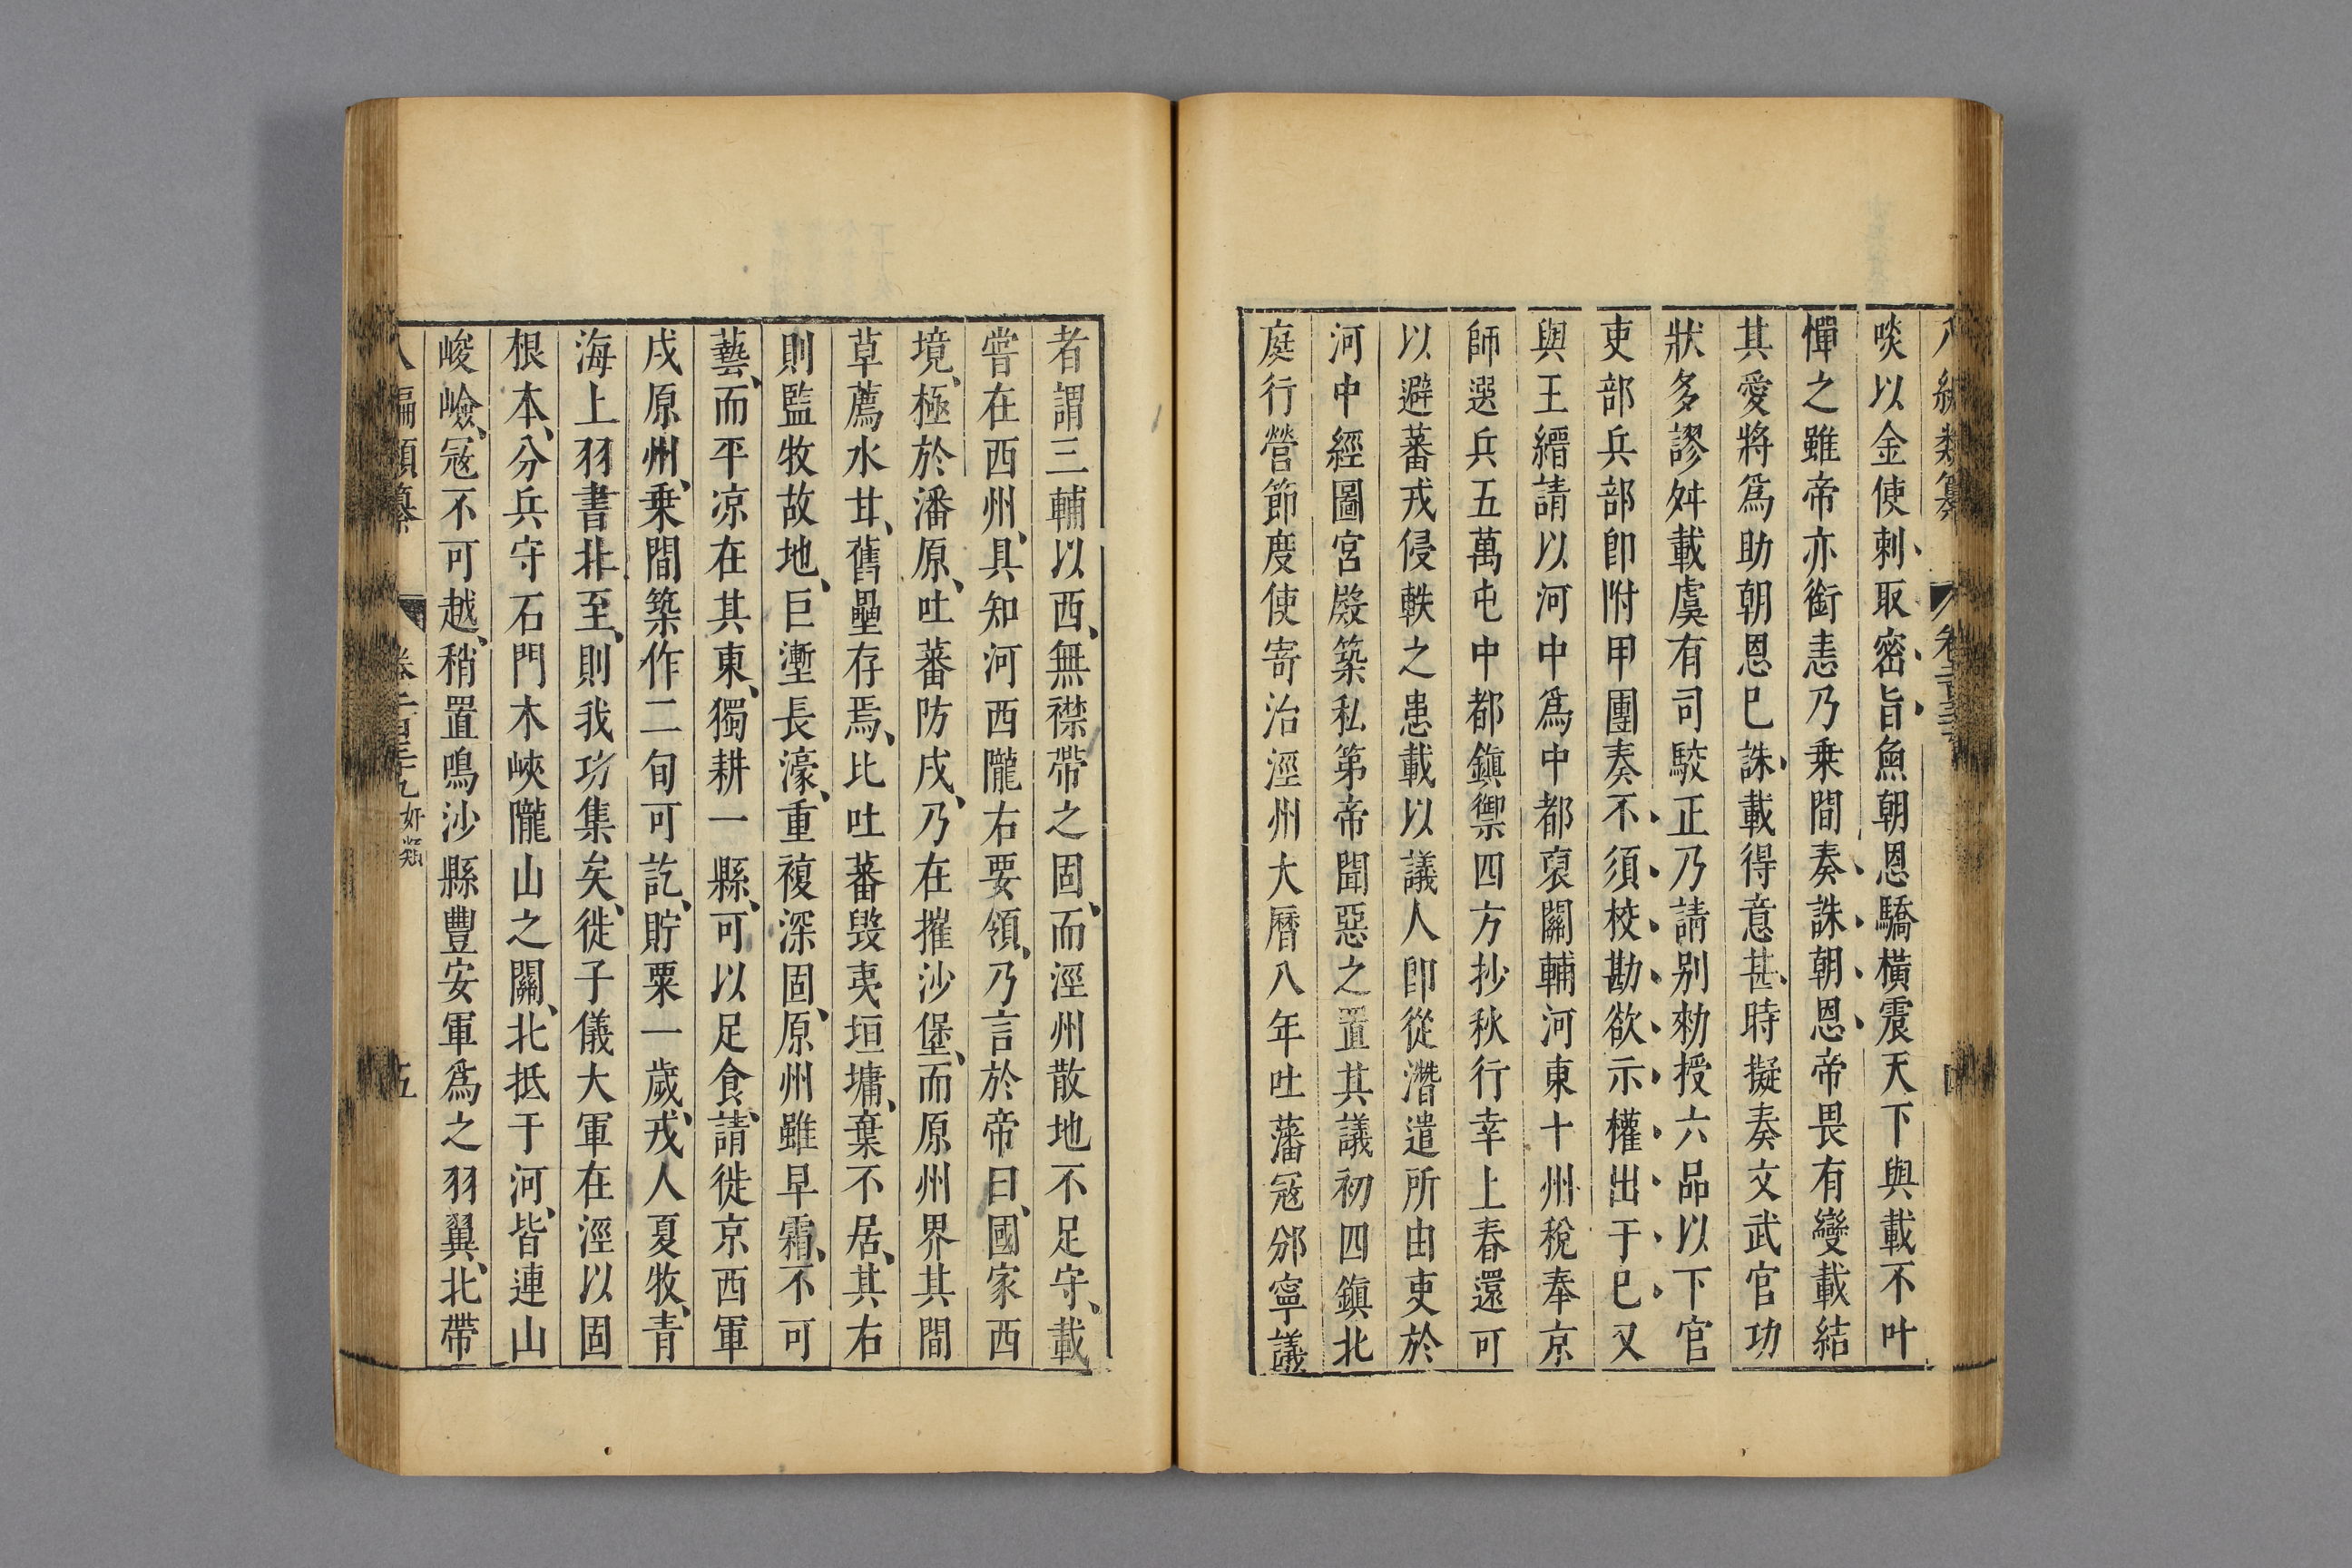 啖以金使刺取密旨魚朝恩驕橫震天下與載不叶
憚之雖帝亦銜恚乃乗間奏誅朝恩帝畏有變載結
其愛將爲助朝恩巳誅載得意甚時擬奏文武官功
狀多謬舛載虞有司駮正乃請别勑授六品以下官
吏部兵部即附甲團奏不須校勘欲示權出于巳又
與王縉請以河中爲中都裒關輔河東十州稅奉京
師選兵五萬屯中都鎭禦四方抄秋行幸上春還可
以避蕃戎侵軼之患載以議人即從潛遣所由吏於
河中經圖宮殿築私第帝聞惡之置其議初四鎭北
庭行營節度使寄治涇州大曆八年吐藩冦邠寧議
者謂三輔以西、無襟帶之固、而涇州散地不足守、載
嘗在西州、具知河西隴右要領、乃言於帝曰、國家西
境、極於潘原、吐蕃防戍、乃在摧沙堡、而原州界其間
草薦水甘、舊壘存焉、比吐蕃毀夷垣墉、棄不居、其右
則監牧故地、巨塹長濠、重複深固、原州雖早霜、不可
藝、而平凉在其東、獨耕一縣、可以足食、請徙京西軍
戍原州、乗間築作二旬可訖、貯粟一歲、戎人夏牧、青
海上羽書非至、則我功集矣、徙子儀大軍在涇以固
根本、分兵守石門木峽隴山之關、北抵于河、皆連山
峻嶮、冦不可越、稍置鳴沙縣豐安軍爲之羽翼、北帶
奸類
五